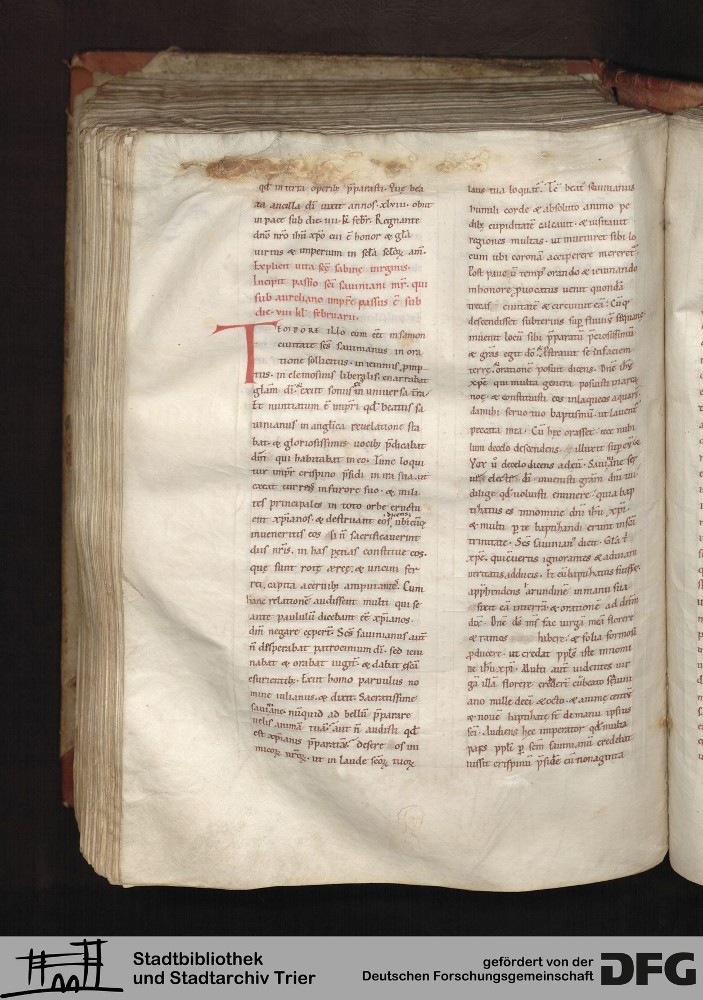 qd in terra operib; p̄parasti. Que bea
ta ancilla dī vixit annos. xlviii. obiit
in pace sub die. iiii. kł febr̄. Regnante
dn̄o nr̄o ihū xp̄o cui ē honor & gła
virtus & imperium in secła secłoꝝ am̄.
Explicit uita scę̄ sabine uirginis.
Incipit passio sc̄i sauiniani mr̄. qui
sub aureliano impr̄e passus ē sub
die. viii. kł. februarii.
TEMPORE illo cum eēt in samon
ciuitate sc̄s sauinianus in ora
tione sollicitus. in ieiuniis, pmp
tus. in elemosinis liberalis. enarrabat
głam dī. exiit sonus in uniuersa tr̄a.
Et nuntiatum ē imp̄ri qd beatus sa
uinianus in anglica reuelatione sta
bat. & gloriosissimis uocib; p̄dicabat
dn̄m qui habitabat in eo. Tunc loqui
tur imp̄r crispino p̄sidi in ira sua. ut
in furore suo. & mili
tes principales in toto orbe
xp̄ianos. & destruant eos, dicens. ubicūq;
inueneritis eos si n̄ sacrificauerint
diis nr̄is. in has penas constitue eos.
que sunt rote ęreę. & uncini fer
rei, capita aceruib; amputante. Cum
hanc relationē audissent multi qui se
ante paululū dicebant eē xp̄ianos.
dn̄m negare ceper̄t. Sc̄s sauinianus aūt
n̄ desperabat patrocinium dī. sed ieiu
nabat & orabat iugit̄. & dabat escā
esurientib;. Exiit homo paruulus no
mine iulianus. & dixit. Sacratissime
sauiniane. nunquid ad bellū p̄parare
uelis animā tuā. aut n̄ audisti qd
est xp̄ianis p̄paratas. desere os ini
micoꝝ nr̄oꝝ. ut in laude sc̄oꝝ tuoꝝ
laus tua loquat̄. Tc̄ beat̄ sauinianus
humili corde & absoluto animo pe
dib; cupiditatē calcauit. & uisitauit
regiones multas. ut inueniret sibi lo
cum ubi coronā accipere mereret̄.
Post paucū temp̄ orando & ieiunando
in honore p̄uocatus uenit quondā
trecas ciuitatē & circuiuit eā. Cūq;
descendisset subterius sup̄ fluuiū sequanę
inuenit locū sibi p̄paratū p̄ciosissimū
& gr̄as egit dō. Et strauit se in faciem
terrę. orationē posuit dicens. Dn̄e ihū
xp̄e qui multa genera posuisti marga
& constituisti eos in laqueos aquarū.
da mihi seruo tuo baptismū. ut lauent̄
peccata mea. Cū hęc orasset ecce nubi
lum de cęlo descendens. illuxit sup̄ eū. &
Vox ū de cęlo dicens ad eū. Sauiniane ser
uus electe dī inuenisti gr̄am dn̄i tui
dilige qd uoluisti emittere quia bap
tizatus es in nomine dn̄i ihū xp̄i.
& multi p̄ te baptizandi erunt in sc̄a
trinitate. Sc̄s sauinian' dicit. Gła t'
xp̄e. qui euertis ignorantes & ad uiam
ueritatis adducis. Et cū baptizatus fuisset
app̄hendens arundinē in manu sua
fixit eā in terrā & orationē ad dn̄m
dix̄. Dn̄e ds̄ ms̄ fac uirgā meā florere
& ramos hibere. & folia formosa
p̄ducere. ut credat ppłs iste in nomi
ne ihū xp̄i. Multi aūt uidentes uir
gā illā florere crediderunt
ano mille decē & octo. & anime centū
& nouē baptizatę s̄t de manu ipsius
sc̄i. Audiens hęc imperator qd multa
pars ppłi p̄ sc̄m sauinianū credebat
iussit crispinū p̄side cū nonaginta
Stadtbibliothek
und Stadtarchiv Trier
gefördert von der
Deutschen Forschungsgemeinschaft
DFG